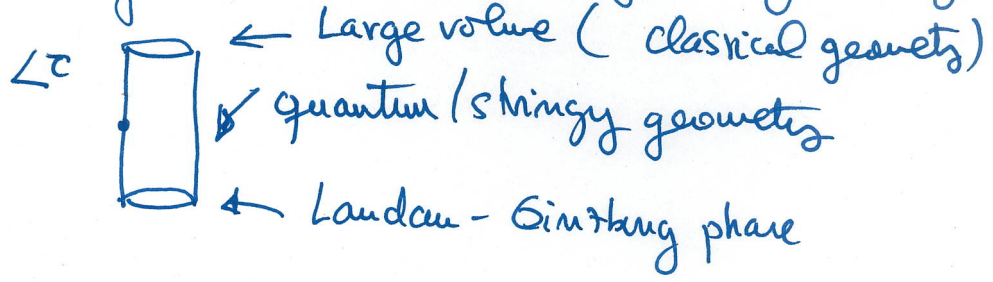 ← Large volume ( classical geometry)
quantum / stringy geometry
← Landau - Ginzburg phase